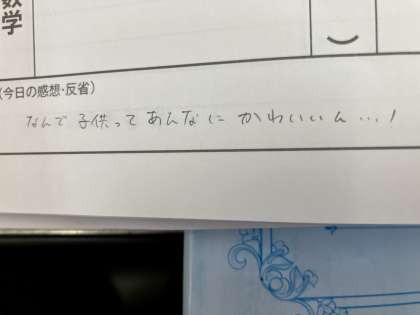 数学
(今日の感想・反省)
なんで子供ってあんなにかわいいん…!